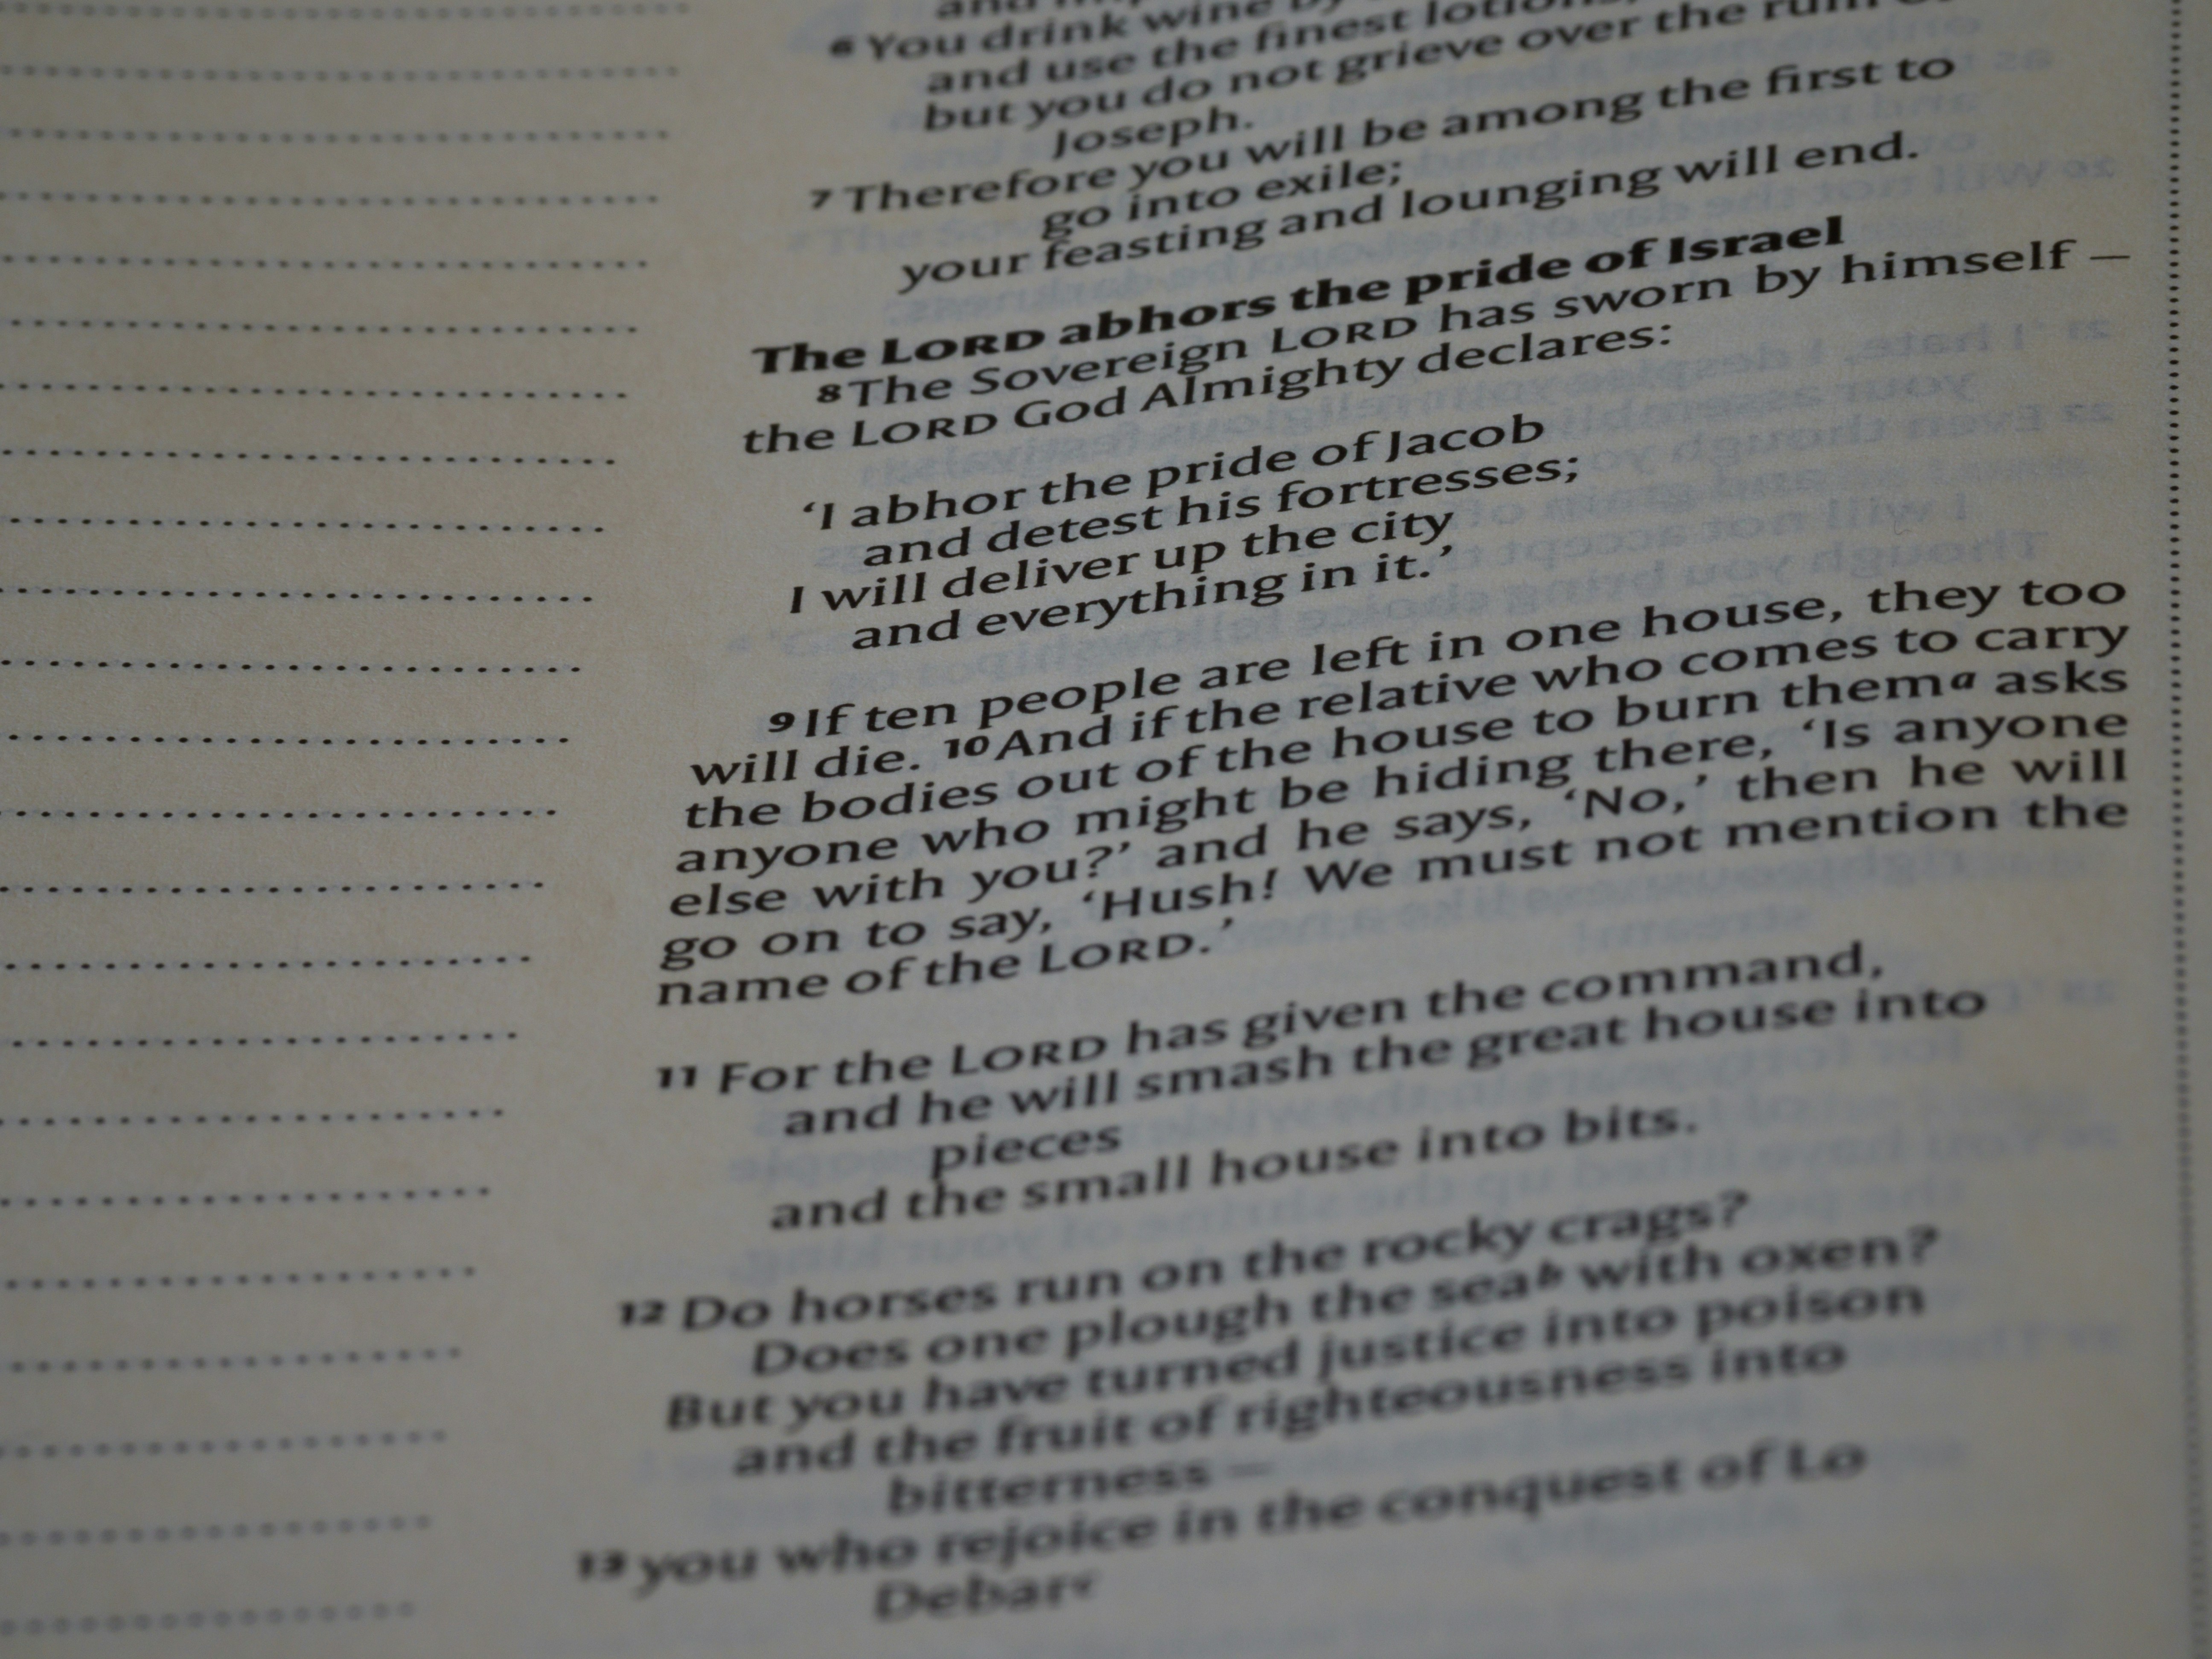 6 You drink wine
and use the finest
but you do not grieve over the
Joseph.
7 Therefore you will be among the first to
go into exile;
your feasting and lounging will end.
The LORD abhors the pride of Israel
8 The Sovereign LORD has sworn by himself –
the LORD God Almighty declares:
‘I abhor the pride of Jacob
and detest his fortresses;
I will deliver up the city
and everything in it.’
9 If ten people are left in one house, they too
will die. 10 And if the relative who comes to carry
the bodies out of the house to burn them a asks
anyone who might be hiding there, ‘Is anyone
else with you?’ and he says, ‘No,’ then he will
go on to say, ‘Hush! We must not mention the
name of the LORD.’
11 For the LORD has given the command,
and he will smash the great house into
pieces
and the small house into bits.
12 Do horses run on the rocky crags?
Does one plough the sea b with oxen?
But you have turned justice into poison
and the fruit of righteousness into
bitterness –
13 you who rejoice in the conquest of Lo
Debar c